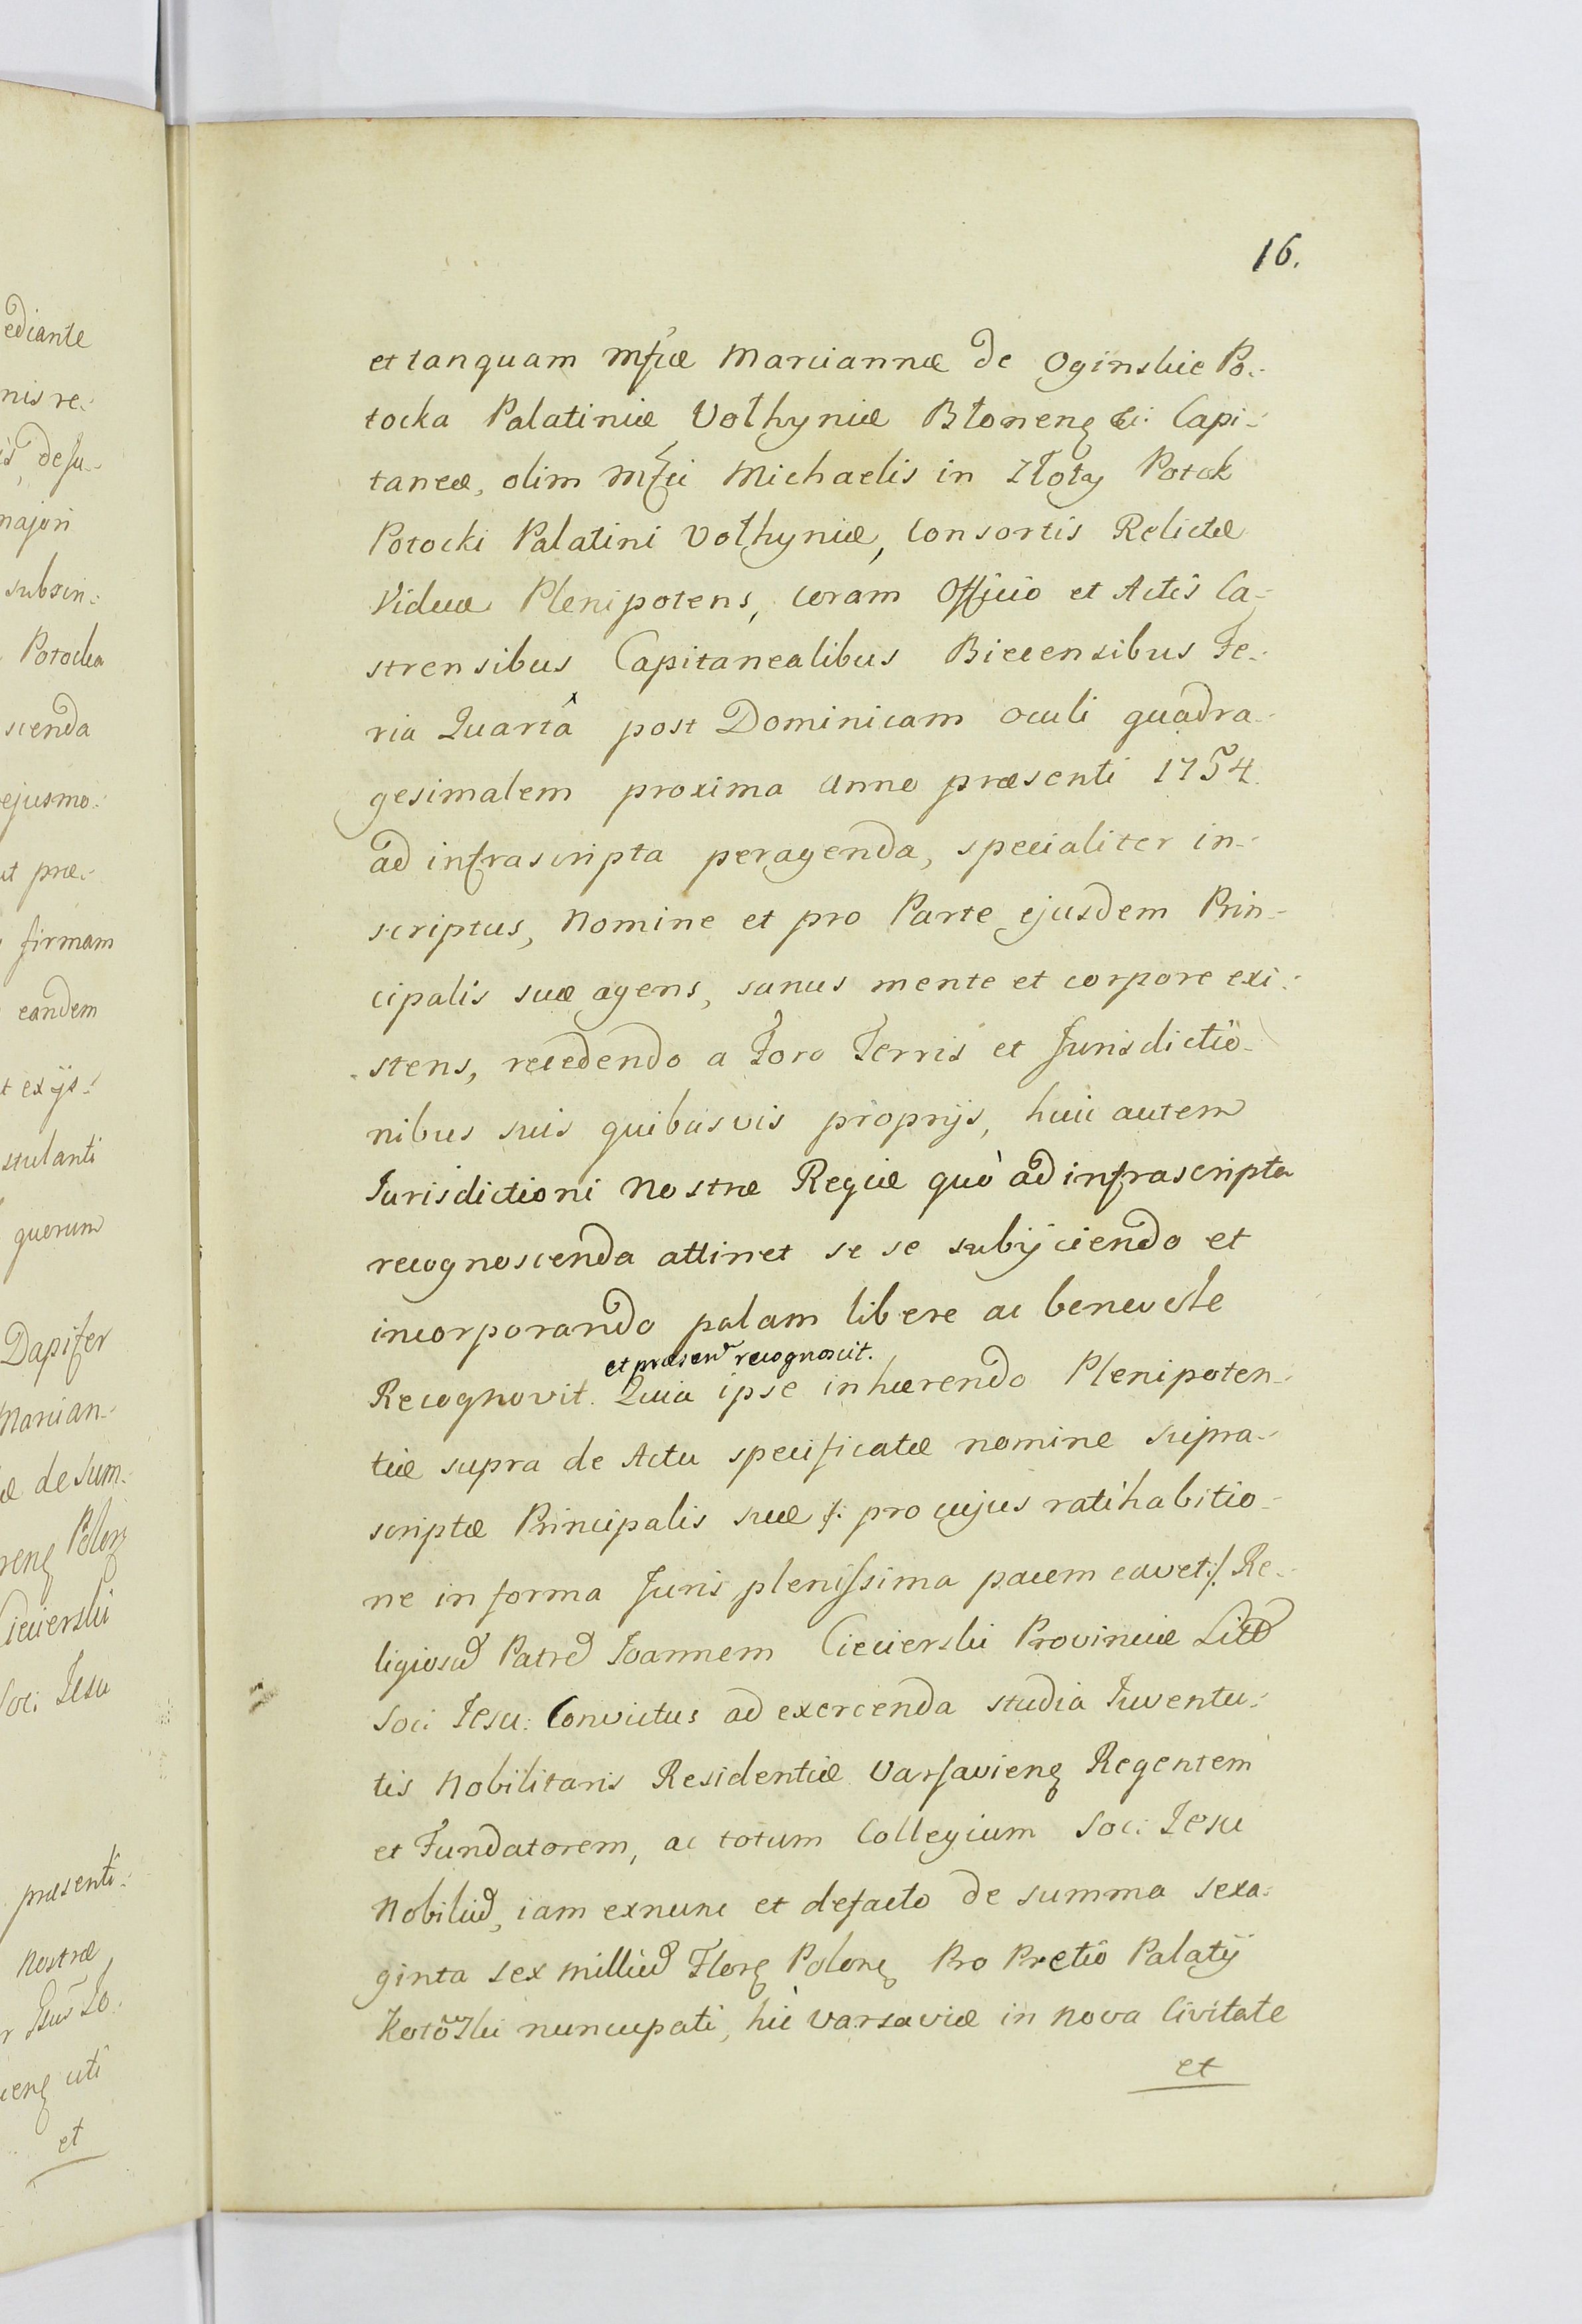 16.
et tanquam Mfcæ Mariannæ de Oginskie Po-
tocka Palatiniæ Volhyniæ Błonenę &c: Capi-
taneæ, olim Mfci Michaelis in Złoty Potok
Potocki Palatini Volhyniæ, Consortis Relictæ
Viduæ Plenipotens, coram Officio et Actis Ca-
strensibus Capitanealibus Biecensibus Fe-
ria Quartâ post Dominicam oculi quadra-
gesimalem proxima Anno præsenti 1754.
ad infrascripta peragenda, specialiter in-
scriptus, Nomine et pro Parte ejusdem Prin-
cipalis suæ agens, sanus mente et corpore exi-
stens, recedendo a Foro Terris et Jurisdictio-
nibus suis quibusvis proprijs, huic autem
Jurisdictioni Nostræ Regiæ quò ad infrascripta
recognoscenda attinet se se subijciendo et
incorporando palam libere ac benevole
et præsen recognoscit.
Recognovit. Quia ipse inhærendo Plenipoten-
tiæ supra de Actu specificatæ nomine supra-
scriptæ Principalis suæ /: pro cujus ratihabitio-
ne in forma Juris plenissima pacem cavet :/ Re-
ligiosu Patre Joannem Ciecierski Provinciæ Litt
Soc: Jesu: Convictus ad exercenda studia Juventu-
tis Nobilitaris Residentiæ Varsavienę Regentem
et Fundatorem, ac totum Collegium Soc: Jesu
Nobiliu, iam exnunc et defacto de summa sexa-
ginta sex milliu Florę Polonę Pro Pretio Palatij
Kotowski nuncupati, hic Varsaviæ in nova Civitate
et
ediante
nis re-
desu-
majori
subsin-
Potocka
scenda
ejusmo-
ut præ-
firmam
eandem
t ex ijs-
stulanti
quorum
Dapifer
Marian-
æ de sum-
renę Polonę
Ciecierski
Soc: Jesu
præsenti-
Nostræ
enę uti
et